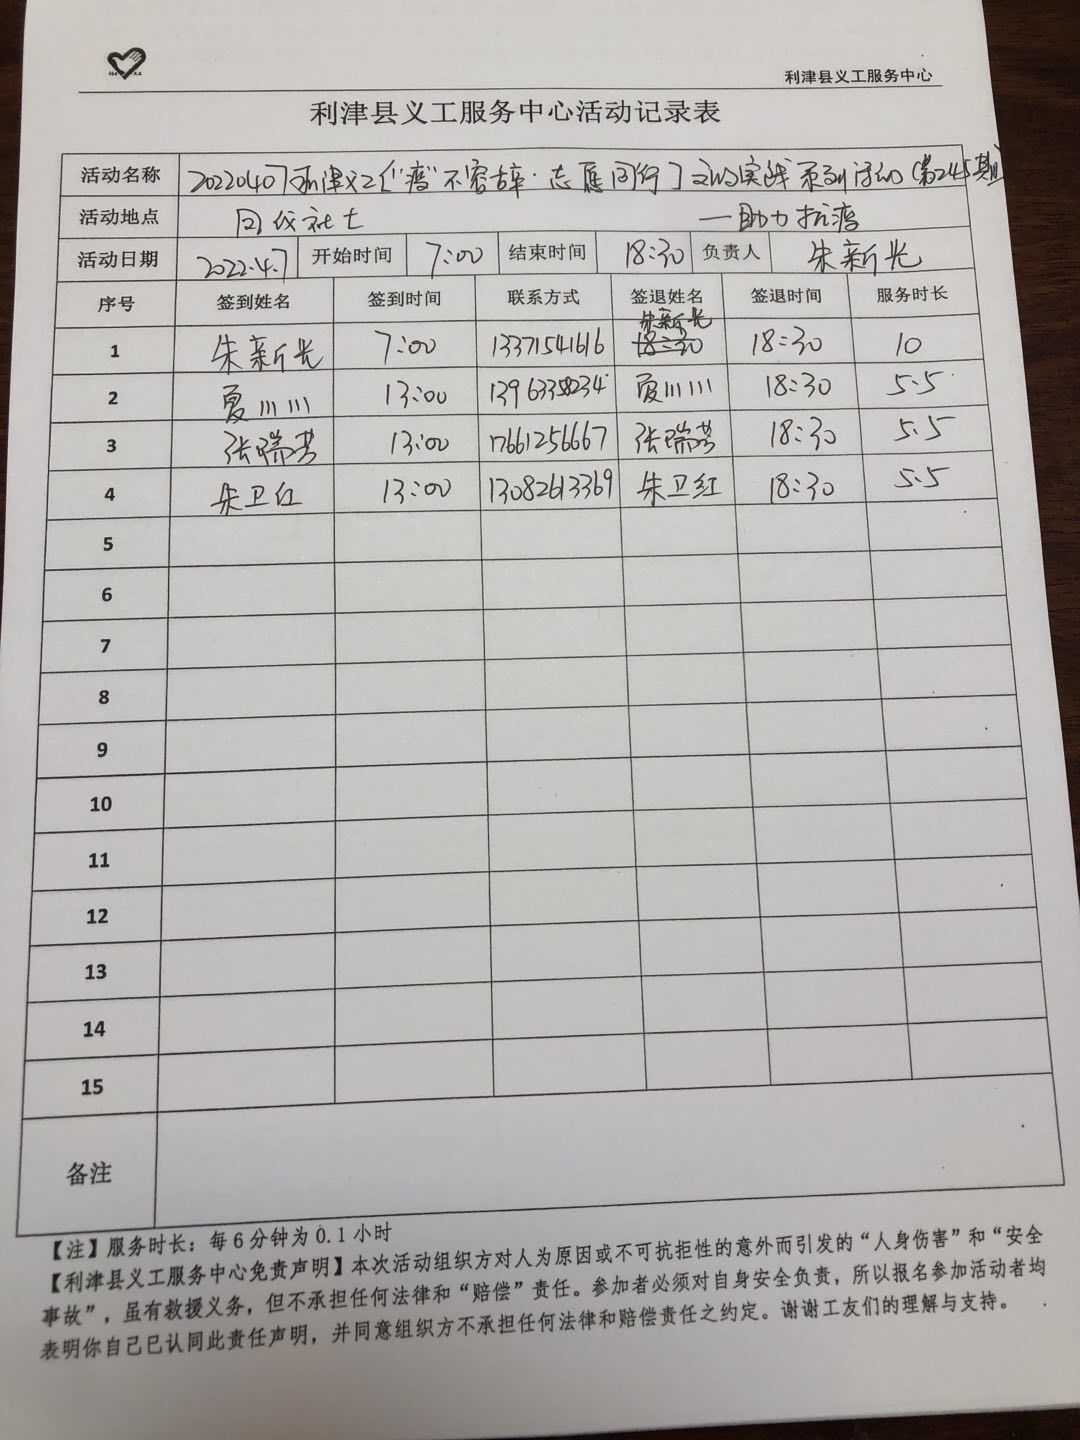 利津县义工服务中心
利津县义工服务中心活动记录表
活动名称 20220407利津义工《"疫"不容辞·志愿同行》文明实践系列活动(第245期)
活动地点 —助力抗疫
活动日期 2022.4.7 开始时间 7:00 结束时间 18:30 负责人 朱新光
序号 签到姓名 签到时间 联系方式 签退姓名 签退时间 服务时长
1 朱新光 7:00 13371541616 朱新光 18:30 18:30 10
2 夏川川 13:00 13963358234 夏川川 18:30 5.5
3 张瑞芳 13:00 17661256667 张瑞芳 18:30 5.5
4 朱卫红 13:00 13082613369 朱卫红 18:30 5.5
5
6
7
8
9
10
11
12
13
14
15
备注
【注】服务时长：每6分钟为0.1小时
【利津县义工服务中心免责声明】本次活动组织方对人为原因或不可抗拒性的意外而引发的“人身伤害”和“安全
事故”，虽有救援义务，但不承担任何法律和“赔偿”责任。参加者必须对自身安全负责，所以报名参加活动者均
表明你自己已认同此责任声明，并同意组织方不承担任何法律和赔偿责任之约定。谢谢工友们的理解与支持。